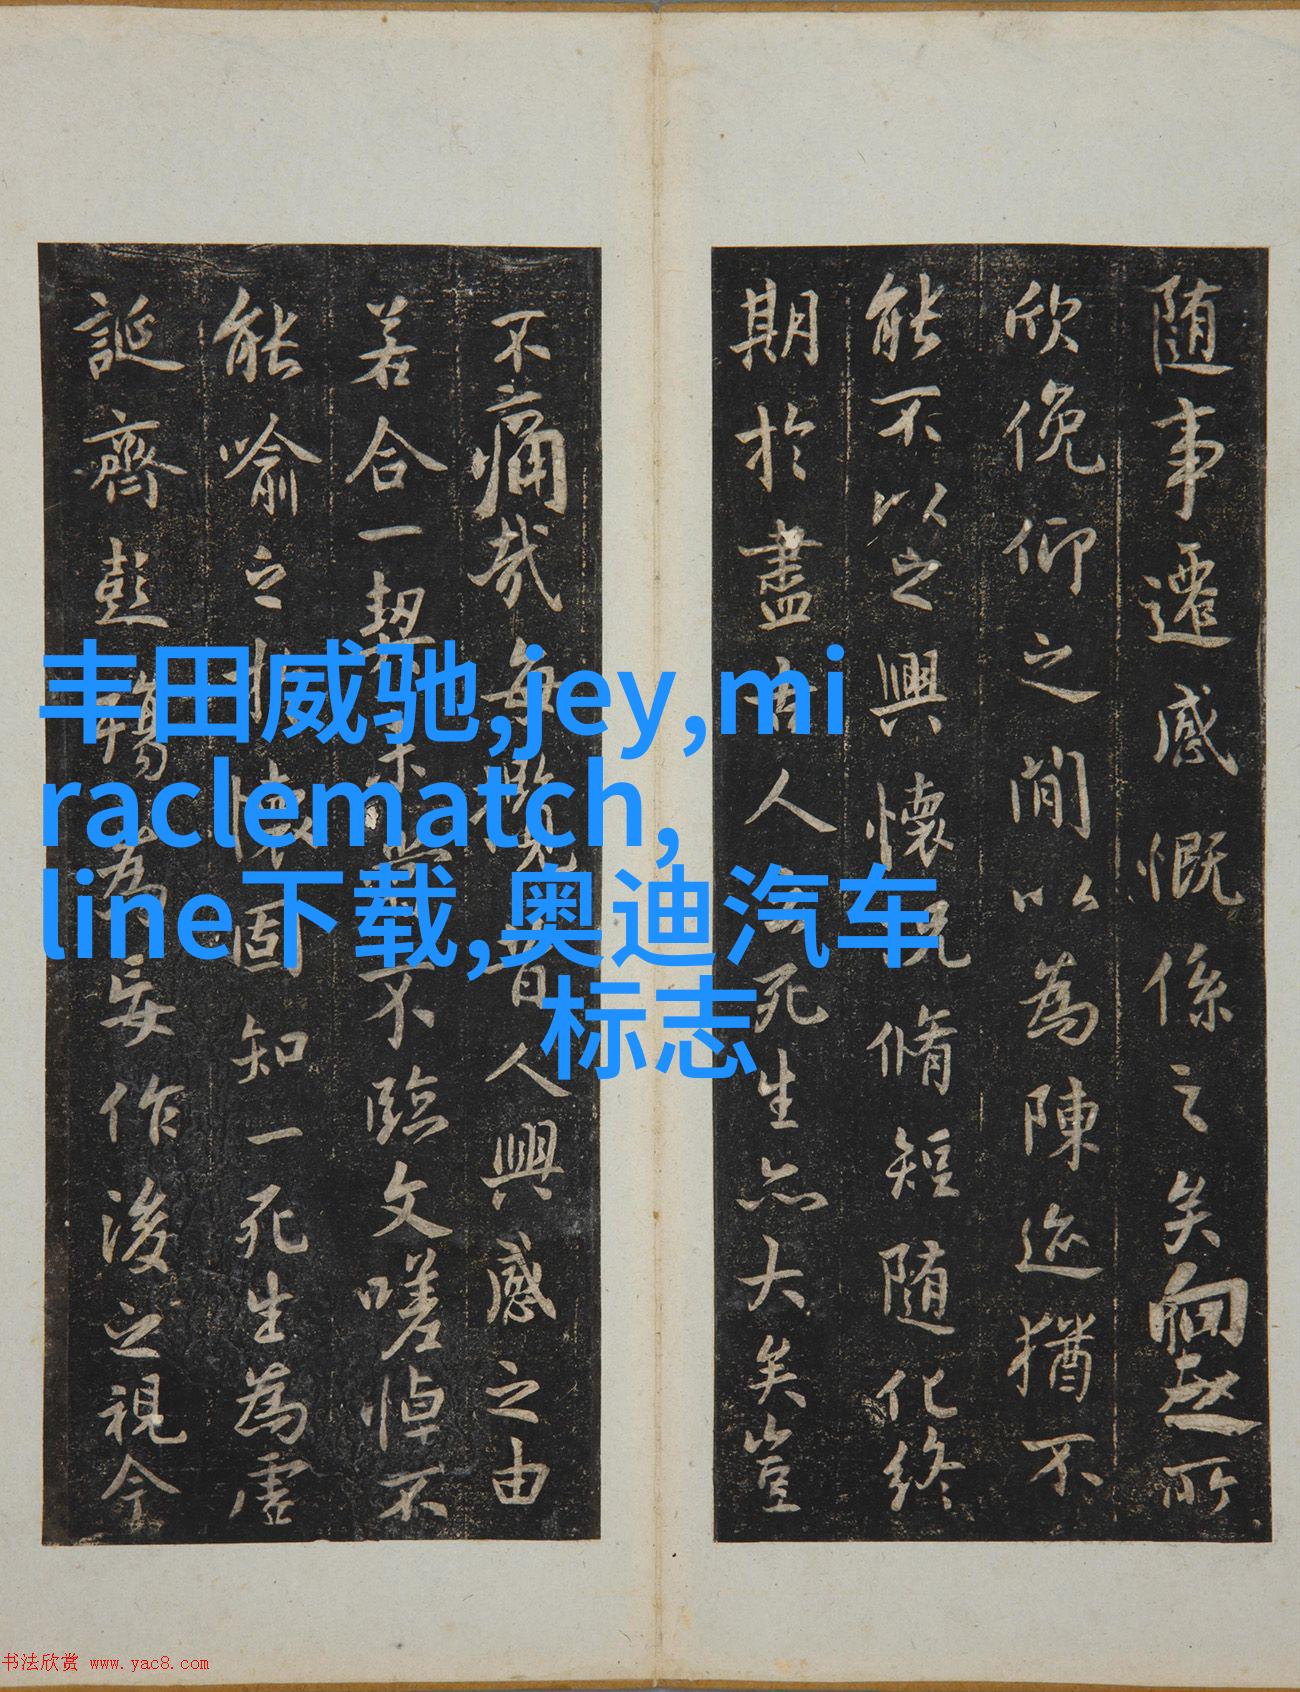 隨事遷感慨係之矣向之所
欣俛仰之間以為陳迹猶不
能不以之興懷況脩短隨化終
期於盡古人云死生亦大矣豈
不痛哉每攬昔人興感之由
若合一契未嘗不臨文嗟悼不
能喻之於懷固知一死生為虛
誕齊彭殤為妄作後之視今
丰田威驰,jey,mi
raclematch,
line下载,奥迪汽车
标志
书法欣赏 www.yac8.com